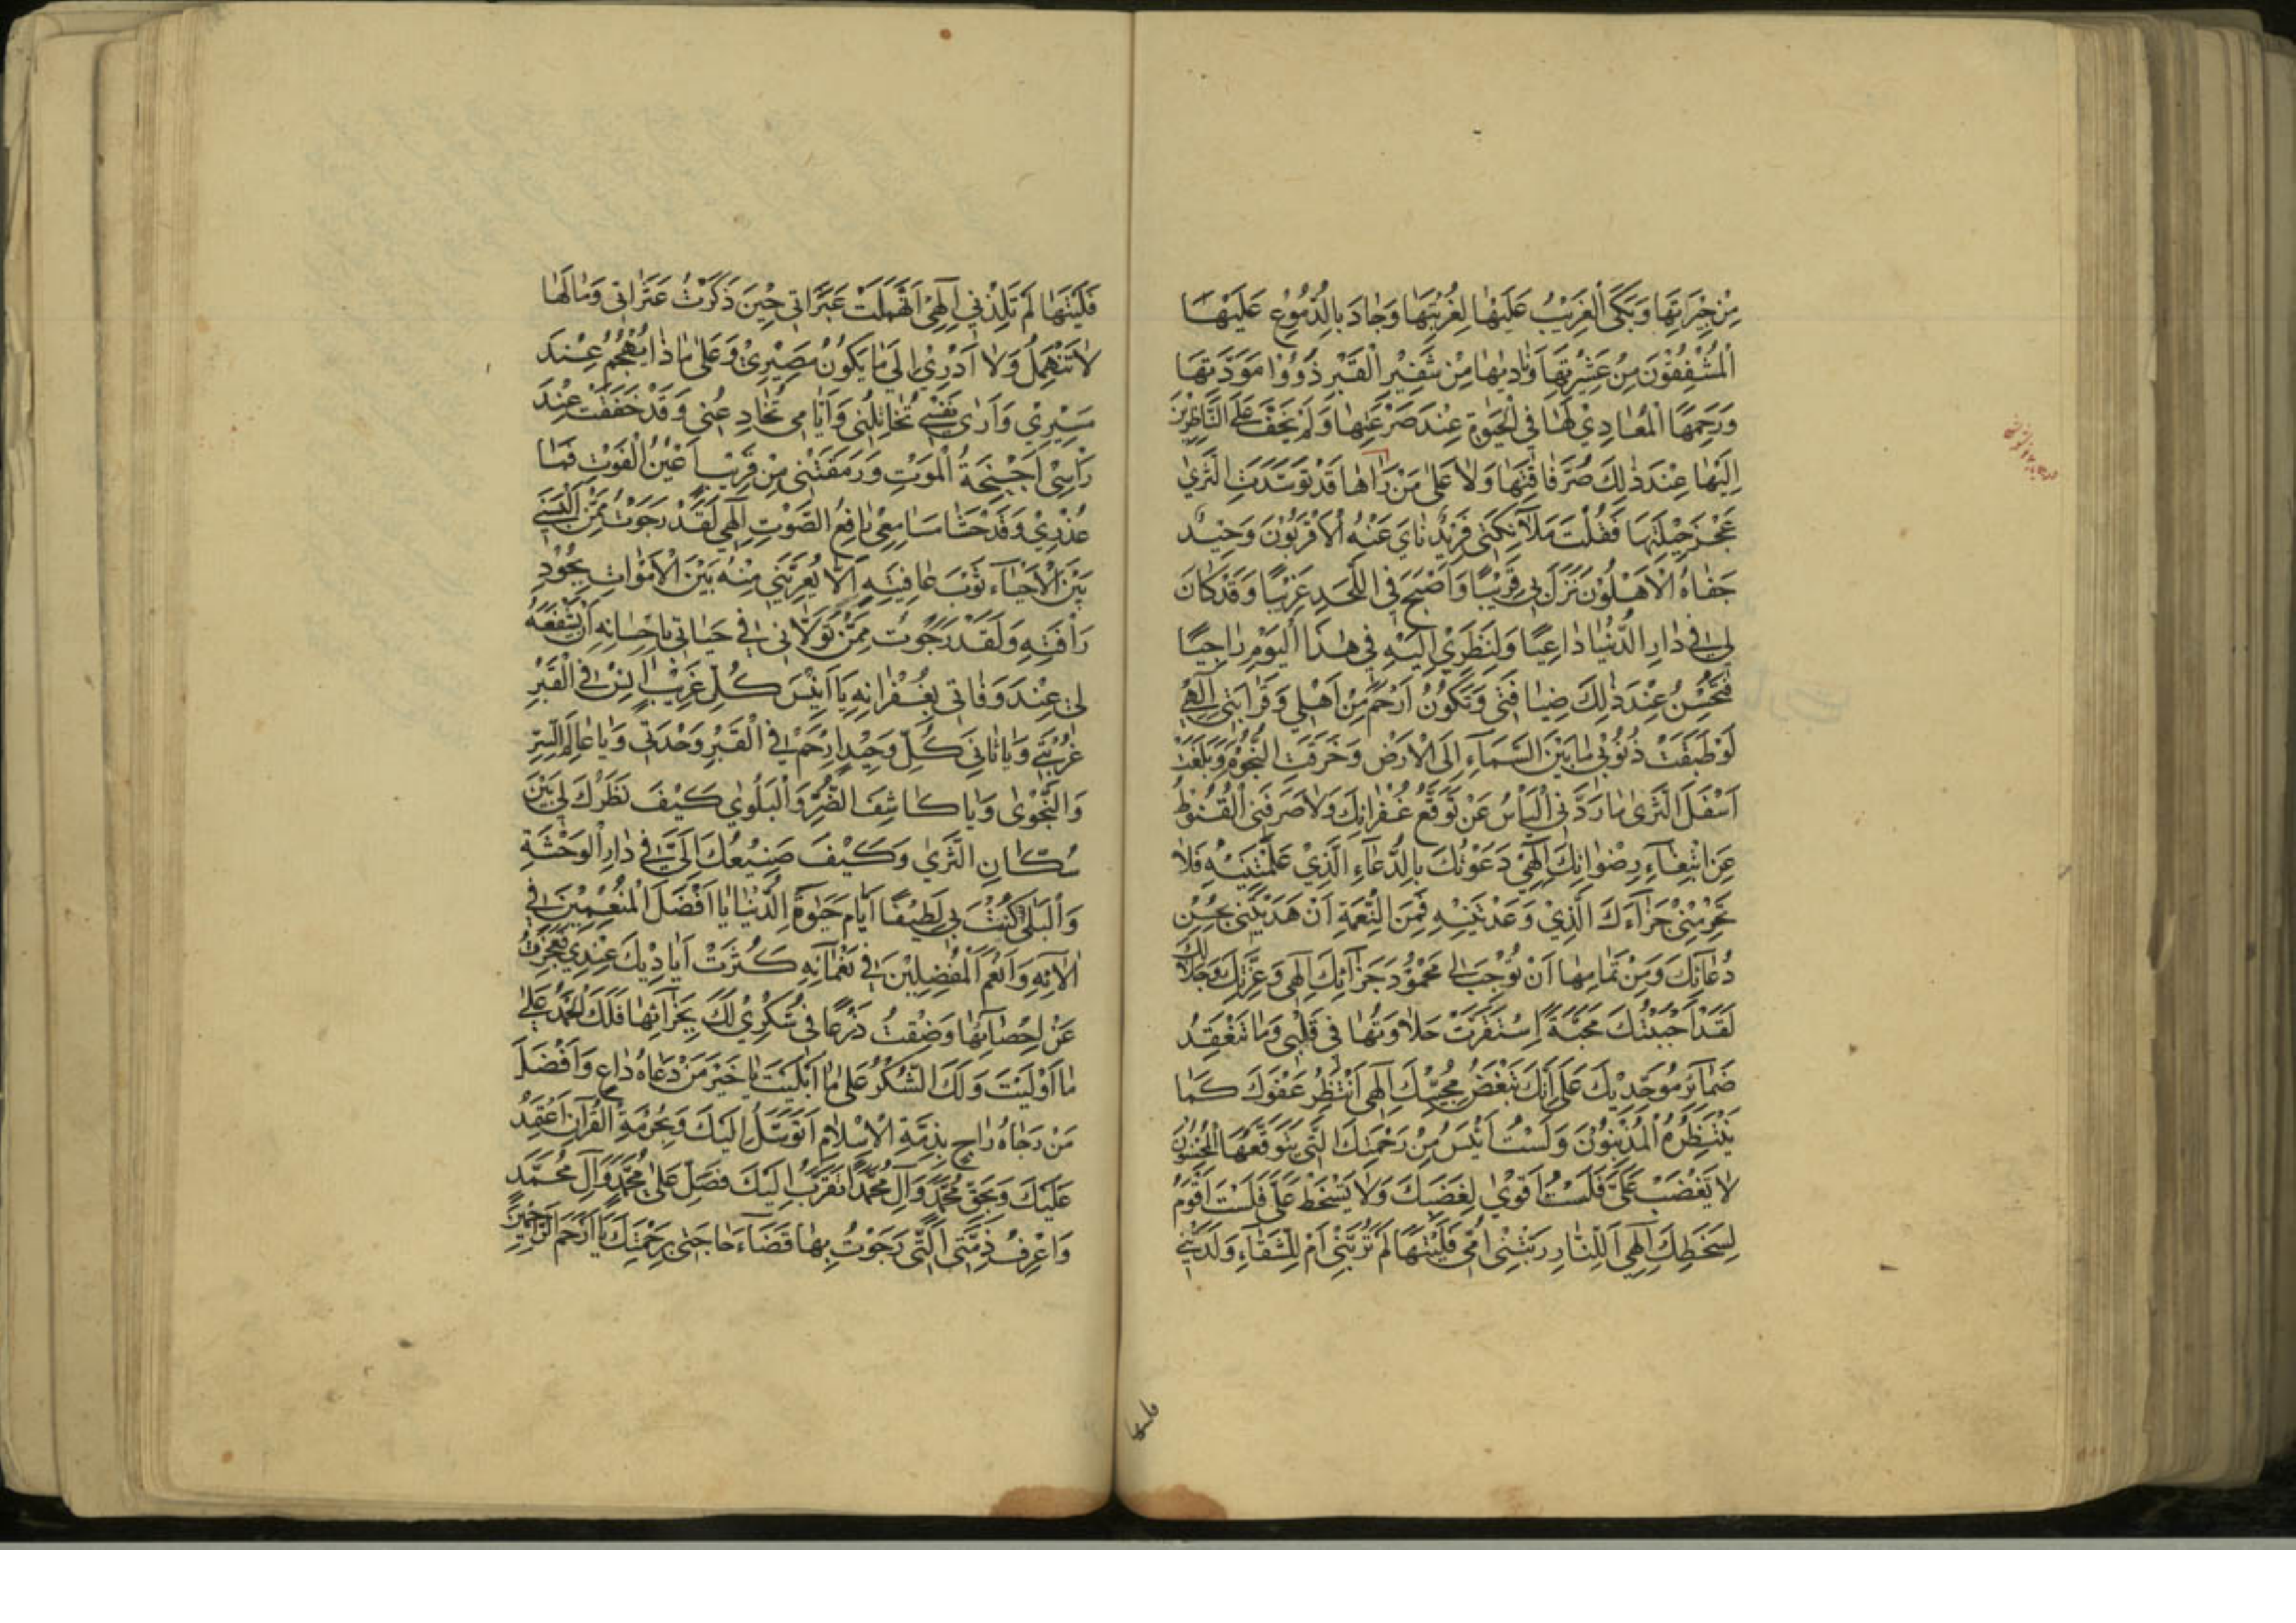 مِنْ جِيْرَتِهَا وَبَكَى الْغَرِيْبُ عَلَيْهَا لِغُرْبَتِهَا وَجَادَ بِالدُّمُوْعِ عَلَيْهَا
الْمُشْفِقُوْنَ مِنْ عَشِيْرَتِهَا وَنَادٰيهَا مِنْ شَفِيْرِ الْقَبْرِ ذَوُوْا مَوَدَّتِهَا
وَرَحِمَهَا الْمُعَادِيْ لَهَا فِي الْحَيٰوةِ عِنْدَ صَرْعَتِهَا وَلَمْ يَخْفَ عَلَى النَّاظِرِيْنَ
اِلَيْهَا عِنْدَ ذٰلِكَ ضُرُّ فَاقَتِهَا وَلَا عَلٰى مَنْ رَاٰهَا قَدْ تَوَسَّدَتِ الثَّرٰى
عَجْزَ حِيْلَتِهَا فَقُلْتَ مَلَآئِكَتِي فَرِيْدٌ نَاٰى عَنْهُ الْاَقْرَبُوْنَ وَحِيْدٌ
جَفَاهُ الْاَهْلُوْنَ نَزَلَ بِي قَرِيْبًا وَاَصْبَحَ فِي اللَّحْدِ غَرِيْبًا وَقَدْ كَانَ
لِي فِي دَارِ الدُّنْيَا دَاعِيًا وَلِنَظَرِيْ اِلَيْهِ فِي هٰذَا الْيَوْمِ رَاجِيًا
فَتُحْسِنُ عِنْدَ ذٰلِكَ ضِيَافَتِي وَتَكُوْنُ اَرْحَمَ بِي مِنْ اَهْلِي وَقَرَابَتِي اِلٰهِي
لَوْ طَبَّقَتْ ذُنُوْبِي مَا بَيْنَ السَّمَآءِ اِلَى الْاَرْضِ وَخَرَقَتِ النُّجُوْمَ وَبَلَغَتْ
اَسْفَلَ الثَّرٰى مَا رَدَّنِي الْيَاْسُ عَنْ تَوَقُّعِ غُفْرَانِكَ وَلَا صَرَفَنِي الْقُنُوْطُ
عَنِ ابْتِغَآءِ رِضْوَانِكَ اِلٰهِيْ دَعَوْتُكَ بِالدُّعَآءِ الَّذِيْ عَلَّمْتَنِيْهِ فَلَا
تَحْرِمْنِيْ جَزَآءَكَ الَّذِيْ وَعَدْتَنِيْهِ فَمِنَ النِّعْمَةِ اَنْ هَدَيْتَنِي بِحُسْنِ
دُعَائِكَ وَمِنْ تَمَامِهَا اَنْ تُوْجِبَ لِي مَحْمُوْدَ جَزَآئِكَ اِلٰهِي وَعِزَّتِكَ وَجَلَالِكَ
لَقَدْ اَحْبَبْتُكَ مَحَبَّةً اِسْتَقَرَّتْ حَلَاوَتُهَا فِي قَلْبِي وَمَا تَنْعَقِدُ
ضَمَآئِرُ مُوَحِّدِيْكَ عَلٰى اَنَّكَ تُبْغِضُ مُحِبِّيْكَ اِلٰهِي اَنْتَظِرُ عَفْوَكَ كَمَا
يَنْتَظِرُهُ الْمُذْنِبُوْنَ وَلَسْتُ اَيْئَسُ مِنْ رَحْمَتِكَ الَّتِي يَتَوَقَّعُهَا الْمُحْسِنُوْنَ
لَا تَغْضَبْ عَلَيَّ فَلَسْتُ اَقْوٰى لِغَضَبِكَ وَلَا تَسْخَطْ عَلَيَّ فَلَسْتُ اَقُوْمُ
لِسَخَطِكَ اِلٰهِي اَلِلنَّارِ رَبَّتْنِي اُمِّي فَلَيْتَهَا لَمْ تُرَبِّنِي اَمْ لِلشَّقَآءِ وَلَدَتْنِي
فليتها
فَلَيْتَهَا لَمْ تَلِدْنِي اِلٰهِيْ اِنْهَمَلَتْ عَبَرَاتِي حِيْنَ ذَكَرْتُ عَثَرَاتِي وَمَا لَهَا
لَا تَنْهَمِلُ وَلَا اَدْرِيْ اِلٰى مَا يَكُوْنُ مَصِيْرِيْ وَعَلٰى مَا ذَا يَهْجُمُ عِنْدَ
مَسِيْرِيْ وَاَرٰى نَفْسِي تُخَاتِلُنِي وَاَيَّامِي تُخَادِعُنِي وَقَدْ خَفَقَتْ عِنْدَ
رَاْسِي اَجْنِحَةُ الْمَوْتِ وَرَمَقَتْنِي مِنْ قَرِيْبٍ اَعْيُنُ الْفَوْتِ فَمَا
عُذْرِيْ وَقَدْ حَشَا مَسَامِعِيْ رَافِعُ الصَّوْتِ اِلٰهِي لَقَدْ رَجَوْتُ مِمَّنْ اَلْبَسَنِي
بَيْنَ الْاَحْيَآءِ ثَوْبَ عَافِيَتِهِ اَلَّا يُعَرِّيَنِي مِنْهُ بَيْنَ الْاَمْوَاتِ بِجُوْدِ
رَاْفَتِهِ وَلَقَدْ رَجَوْتُ مِمَّنْ تَوَلَّانِي فِي حَيَاتِي بِاِحْسَانِهِ اَنْ يَشْفَعَهُ
لِي عِنْدَ وَفَاتِي بِغُفْرَانِهِ يَا اَنِيْسَ كُلِّ غَرِيْبٍ اٰنِسْ فِي الْقَبْرِ
غُرْبَتِي وَيَا ثَانِيَ كُلِّ وَحِيْدٍ اِرْحَمْ فِي الْقَبْرِ وَحْدَتِي وَيَا عَالِمَ السِّرِّ
وَالنَّجْوٰى وَيَا كَاشِفَ الضُّرِّ وَالْبَلْوٰى كَيْفَ نَظَرُكَ لِي بَيْنَ
سُكَّانِ الثَّرٰى وَكَيْفَ صَنِيْعُكَ اِلَيَّ فِي دَارِ الْوَحْشَةِ
وَالْبَلٰى كُنْتَ بِي لَطِيْفًا اَيَّامَ حَيٰوةِ الدُّنْيَا يَا اَفْضَلَ الْمُنْعِمِيْنَ فِي
اٰلَائِهِ وَاَنْعَمَ الْمُفْضِلِيْنَ فِي نَعْمَآئِهِ كَثُرَتْ اَيَادِيْكَ عِنْدِي فَعَجَزْتُ
عَنْ اِحْصَآئِهَا وَضِقْتُ ذَرْعًا فِي شُكْرِيْ لَكَ بِجَزَآئِهَا فَلَكَ الْحَمْدُ عَلٰى
مَا اَوْلَيْتَ وَلَكَ الشُّكْرُ عَلٰى مَا اَبْلَيْتَ يَا خَيْرَ مَنْ دَعَاهُ دَاعٍ وَاَفْضَلَ
مَنْ رَجَاهُ رَاجٍ بِذِمَّةِ الْاِسْلَامِ اَتَوَسَّلُ اِلَيْكَ وَبِحُرْمَةِ الْقُرْاٰنِ اَعْتَمِدُ
عَلَيْكَ وَبِحَقِّ مُحَمَّدٍ وَاٰلِ مُحَمَّدٍ اَتَقَرَّبُ اِلَيْكَ فَصَلِّ عَلٰى مُحَمَّدٍ وَاٰلِ مُحَمَّدٍ
وَاعْرِفْ ذِمَّتِي الَّتِي رَجَوْتُ بِهَا قَضَآءَ حَاجَتِي بِرَحْمَتِكَ يَا اَرْحَمَ الرَّاحِمِيْنَ